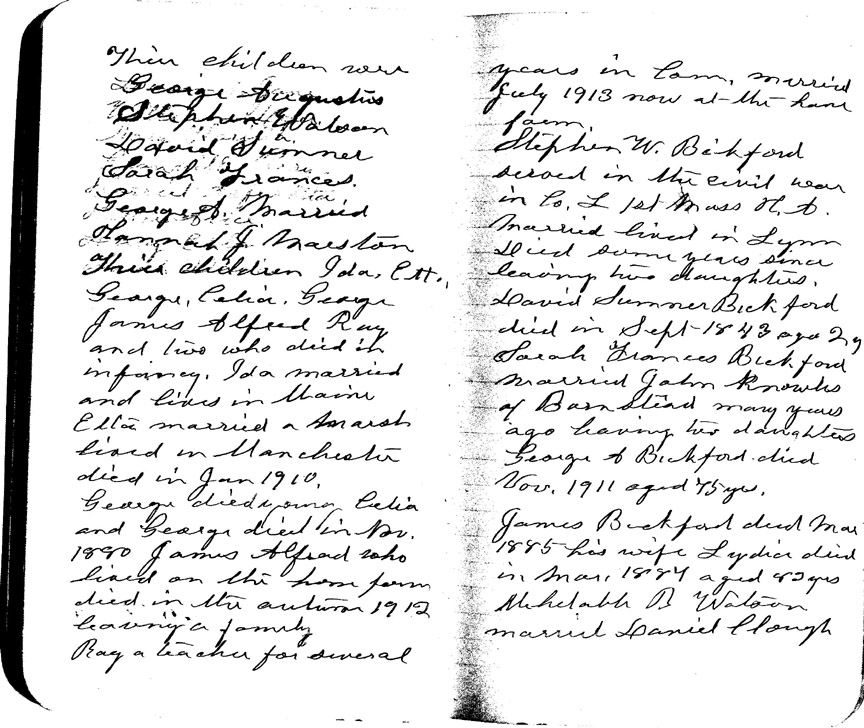 Their children were
George Augustus
Stephen Watson
David Sumner
Sarah Frances.
George A. Married
Hannah J. Marston
Their children Ida, Ett.,
George, Celia, George
James Alfred Ray
and two who died in
infancy. Ida married
and lives in Maine
Etta married a Marsh
lived in Manchester
died in Jan 1910.
George died young Celia
and George died in Nov.
1880 James Alfred who
lived on the home farm
died in the autumn 1912
leaving a family
Ray a teacher for several
years in Conn, married
July 1913 now at the home
farm.
Stephen W. Bickford
served in the civil war
in Co. L 1st Mass H. A.
Married lived in Lynn
Died some years since
leaving two daughters.
David Sumner Bickford
died in Sept 1843 age 2 y
Sarah Frances Bickford
married John Knowles
of Barnstead many years
ago leaving two daughters
George A Bickford died
Nov. 1911 aged 75 yrs.
James Bickford died Mar
1885 his wife Lydia died
in Mar, 1884 aged 82 yrs
Mehetable B Watson
married Daniel Clough